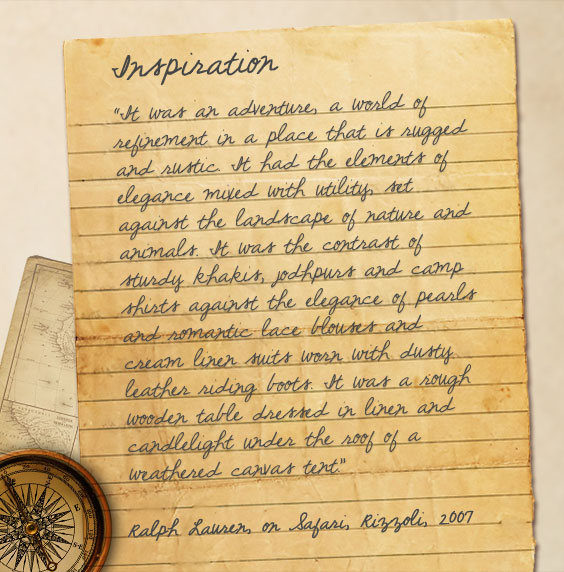 Inspiration
"It was an adventure, a world of
refinement in a place that is rugged
and rustic. It had the elements of
elegance mixed with utility, set
against the landscape of nature and
animals. It was the contrast of
sturdy khakis, jodhpurs and camp
shirts against the elegance of pearls
and romantic lace blouses and
cream linen suits worn with dusty
leather riding boots. It was a rough
wooden table dressed in linen and
candlelight under the roof of a
weathered canvas tent."
Ralph Lauren, on Safari, Rizzoli, 2007